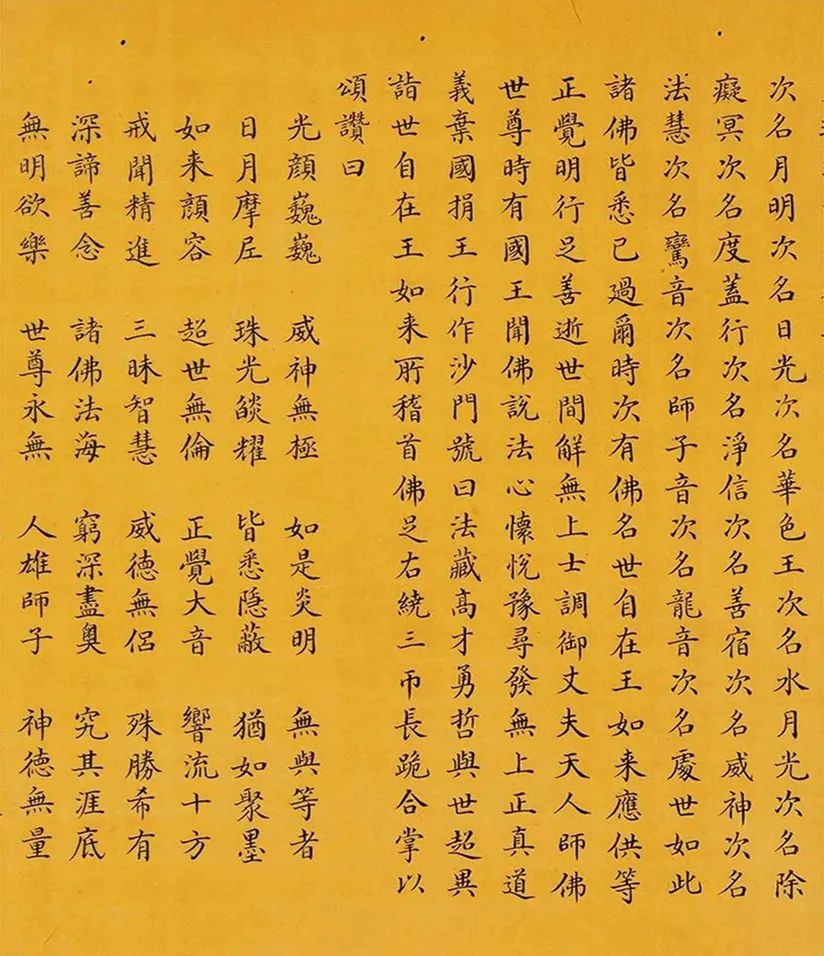 次名月明次名日光次名華色王次名水月光次名除
癡冥次名度蓋行次名淨信次名善宿次名威神次名
法慧次名鸞音次名師子音次名龍音次名處世如此
諸佛皆悉已過爾時次有佛名世自在王如来應供等
正覺明行足善逝世間解無上士調御丈夫天人師佛
世尊時有國王聞佛說法心懷悅豫尋發無上正真道
義棄國捐王行作沙門號曰法藏高才勇哲與世超異
詣世自在王如来所稽首佛足右繞三帀長跪合掌以
頌讚曰
光顏巍巍 威神無極 如是炎明 無與等者
日月摩尼 珠光燄耀 皆悉隱蔽 猶如聚墨
如来顏容 超世無倫 正覺大音 響流十方
戒聞精進 三昧智慧 威德無侶 殊勝希有
深諦善念 諸佛法海 窮深盡奧 究其涯底
無明欲樂 世尊永無 人雄師子 神德無量